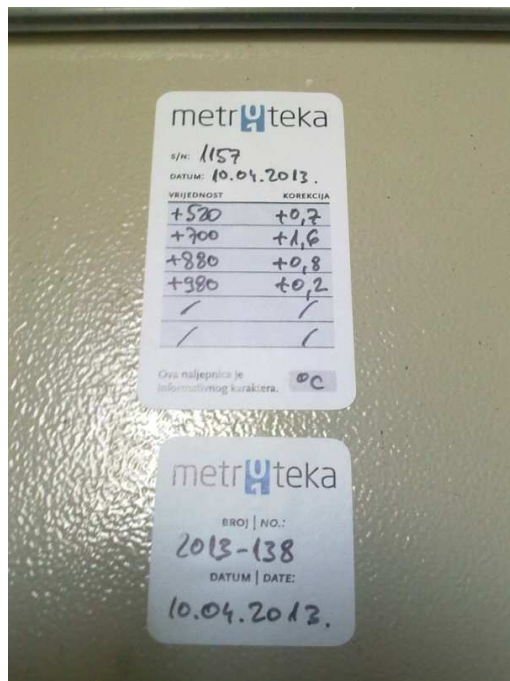 metroteka
S/N: 1157
DATUM: 10.04.2013.
VRIJEDNOST KOREKCIJA
+520 +0,7
+700 +1,6
+880 +0,8
+980 +0,2
/ /
/ /
Ova naljepnica je
informativnog karaktera.
°C
metroteka
BROJ | NO.:
2013-138
DATUM | DATE:
10.04.2013.